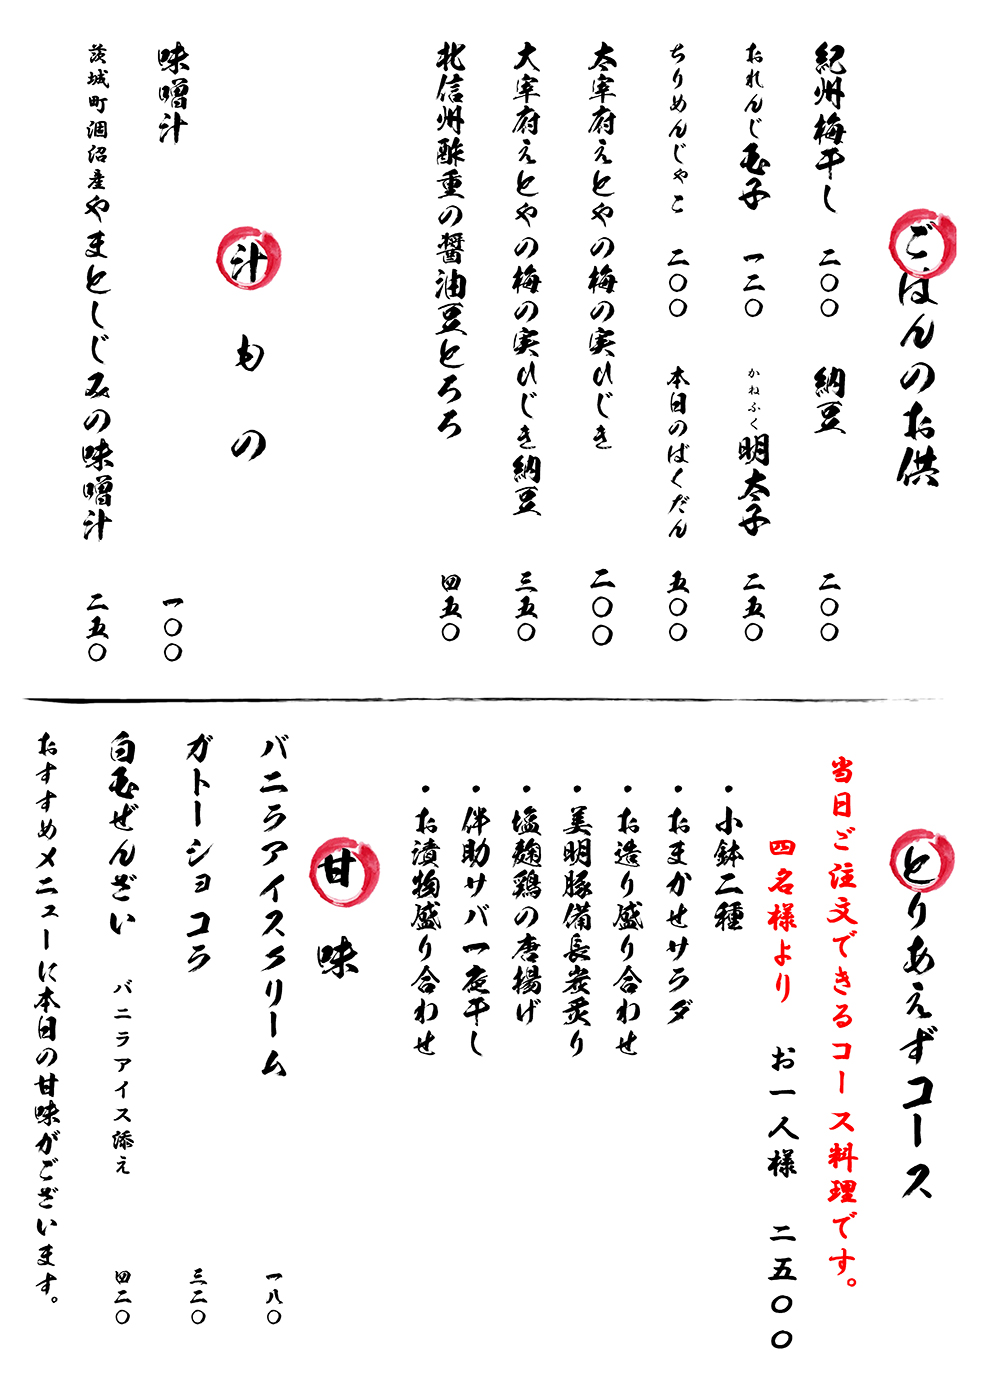 ごはんのお供
紀州梅干し 二〇〇 納豆 二〇〇
おれんじ玉子 一二〇 かねふく明太子 二五〇
ちりめんじゃこ 二〇〇 本日のばくだん 五〇〇
太宰府えとやの梅の実ひじき 二〇〇
大宰府えとやの梅の実ひじき納豆 三五〇
北信州酢重の醤油豆とろろ 四五〇
汁もの
味噌汁 一〇〇
茨城町涸沼産やまとしじみの味噌汁 二五〇
とりあえずコース
当日ご注文できるコース料理です。
四名様より お一人様 二五〇〇
・小鉢二種
・おまかせサラダ
・お造り盛り合わせ
・美明豚備長炭炙り
・塩麹鶏の唐揚げ
・伴助サバ一夜干し
・お漬物盛り合わせ
甘味
バニラアイスクリーム 一八〇
ガトーショコラ 三二〇
白玉ぜんざい バニラアイス添え 四二〇
おすすめメニューに本日の甘味がございます。